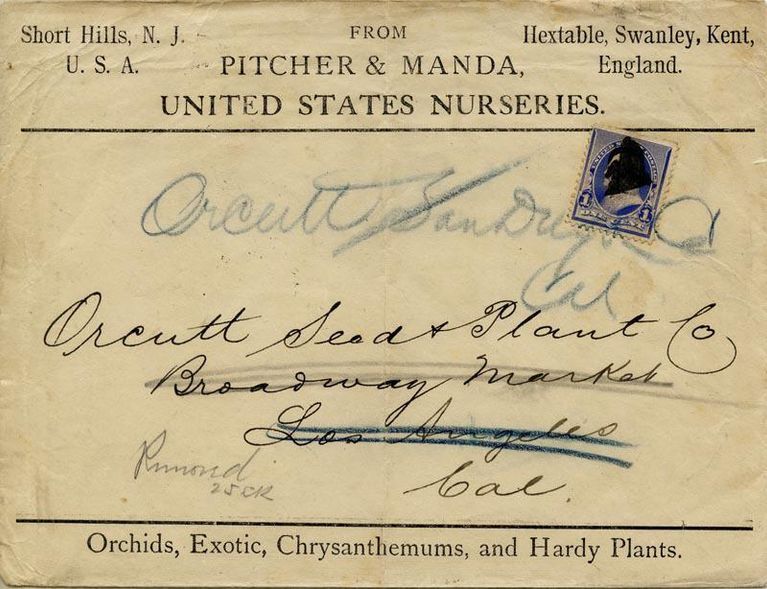 Short Hills, N. J. FROM Hextable, Swanley, Kent,
U. S. A. PITCHER & MANDA, England.
UNITED STATES NURSERIES.
1 ONE CENT 1
Orcutt San Diego Co
Cal
Orcutt Seed & Plant Co
Broadway Market
Los Angeles
Cal.
Orchids, Exotic, Chrysanthemums, and Hardy Plants.